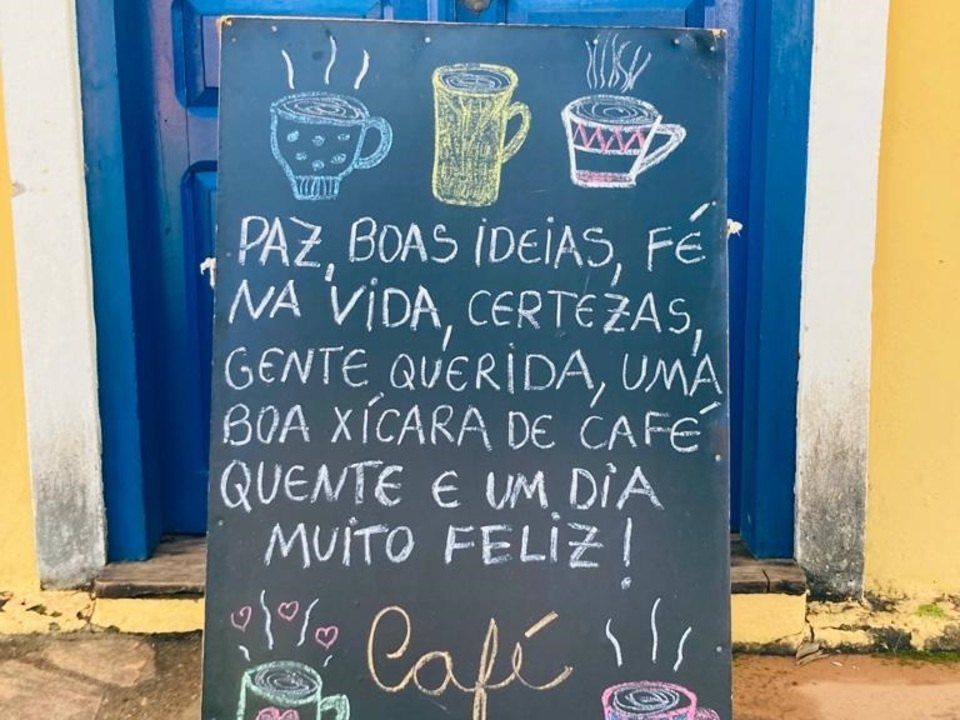 PAZ, BOAS IDEIAS, FÉ
NA VIDA, CERTEZAS,
GENTE QUERIDA, UMA
BOA XÍCARA DE CAFÉ
QUENTE E UM DIA
MUITO FELIZ!
Café